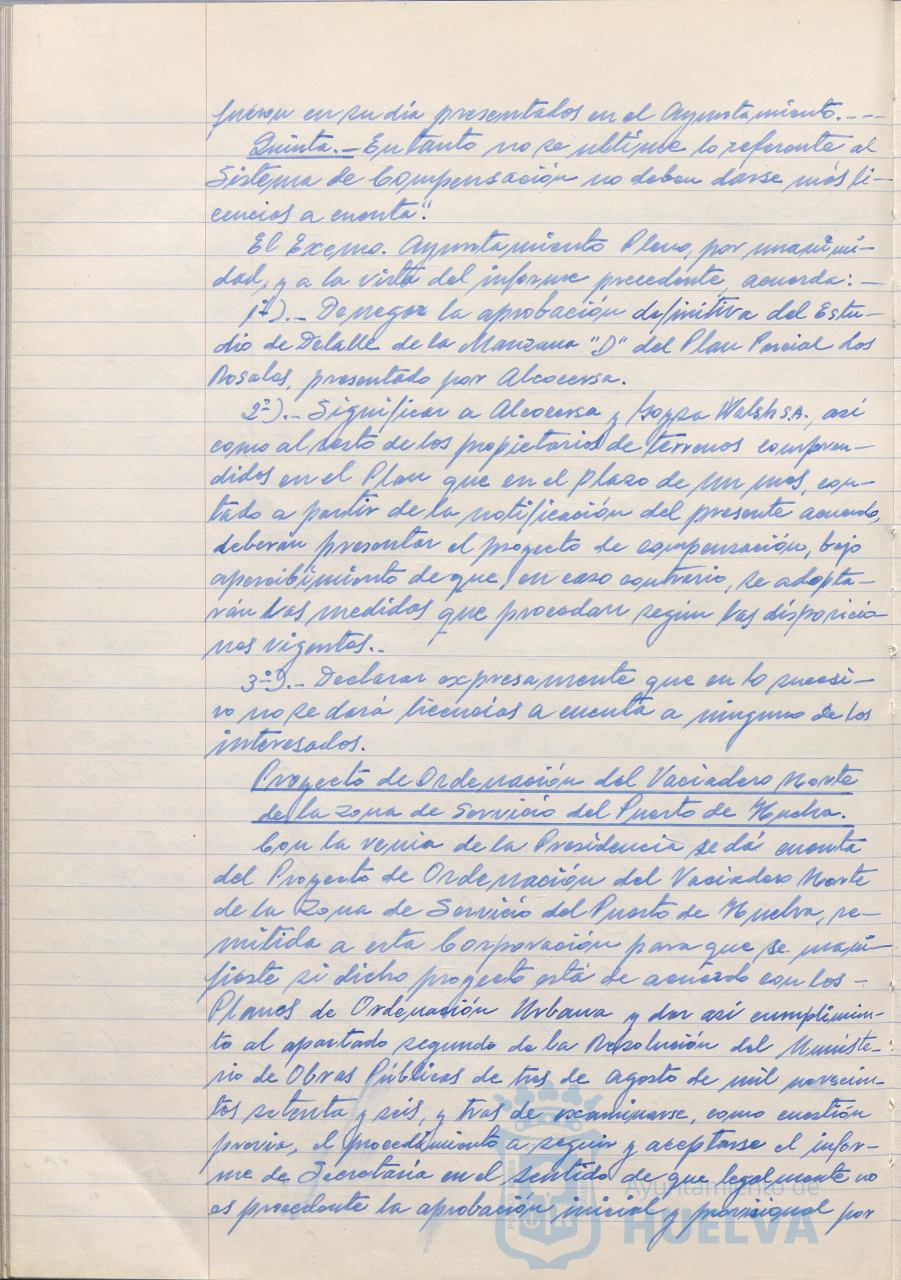 fueron en su día presentados en el Ayuntamiento.---
Quinta.- En tanto no se ultime lo referente al
Sistema de Compensación no deben darse más li-
cencias a cuenta".
El Excmo. Ayuntamiento Pleno, por unanimi-
dad, y a la vista del informe precedente, acuerda:-
1º).- Denegar la aprobación definitiva del Estu-
dio de Detalle de la Manzana "D" del Plan Parcial Los
Rosales, presentado por Alcocersa.
2º).- Significar a Alcocersa y Walsh S.A., así
como al resto de los propietarios de terrenos compren-
didos en el Plan que en el plazo de un mes, con-
tado a partir de la notificación del presente acuerdo,
deberán presentar el proyecto de compensación, bajo
apercibimiento de que, en caso contrario, se adopta-
rán las medidas que procedan según las disposicio-
nes vigentes.-
3º).- Declarar expresamente que en lo sucesi-
vo no se dará licencias a cuenta a ninguno de los
interesados.
Proyecto de Ordenación del Vaciadero Norte
de la zona de Servicio del Puerto de Huelva.
Con la venia de la Presidencia se dá cuenta
del Proyecto de Ordenación del Vaciadero Norte
de la Zona de Servicio del Puerto de Huelva, re-
mitida a esta Corporación para que se mani-
fieste si dicho proyecto está de acuerdo con los-
Planes de Ordenación Urbana y dar así cumplimien-
to al apartado segundo de la Resolución del Ministe-
rio de Obras Públicas de tres de agosto de mil novecien-
tos setenta y seis, y tras de examinarse, como cuestión
previa, el procedimiento a seguir y aceptarse el infor-
me de Secretaría en el sentido de que legalmente no
es procedente la aprobación inicial y provisional por
Ayuntamiento de
HUELVA